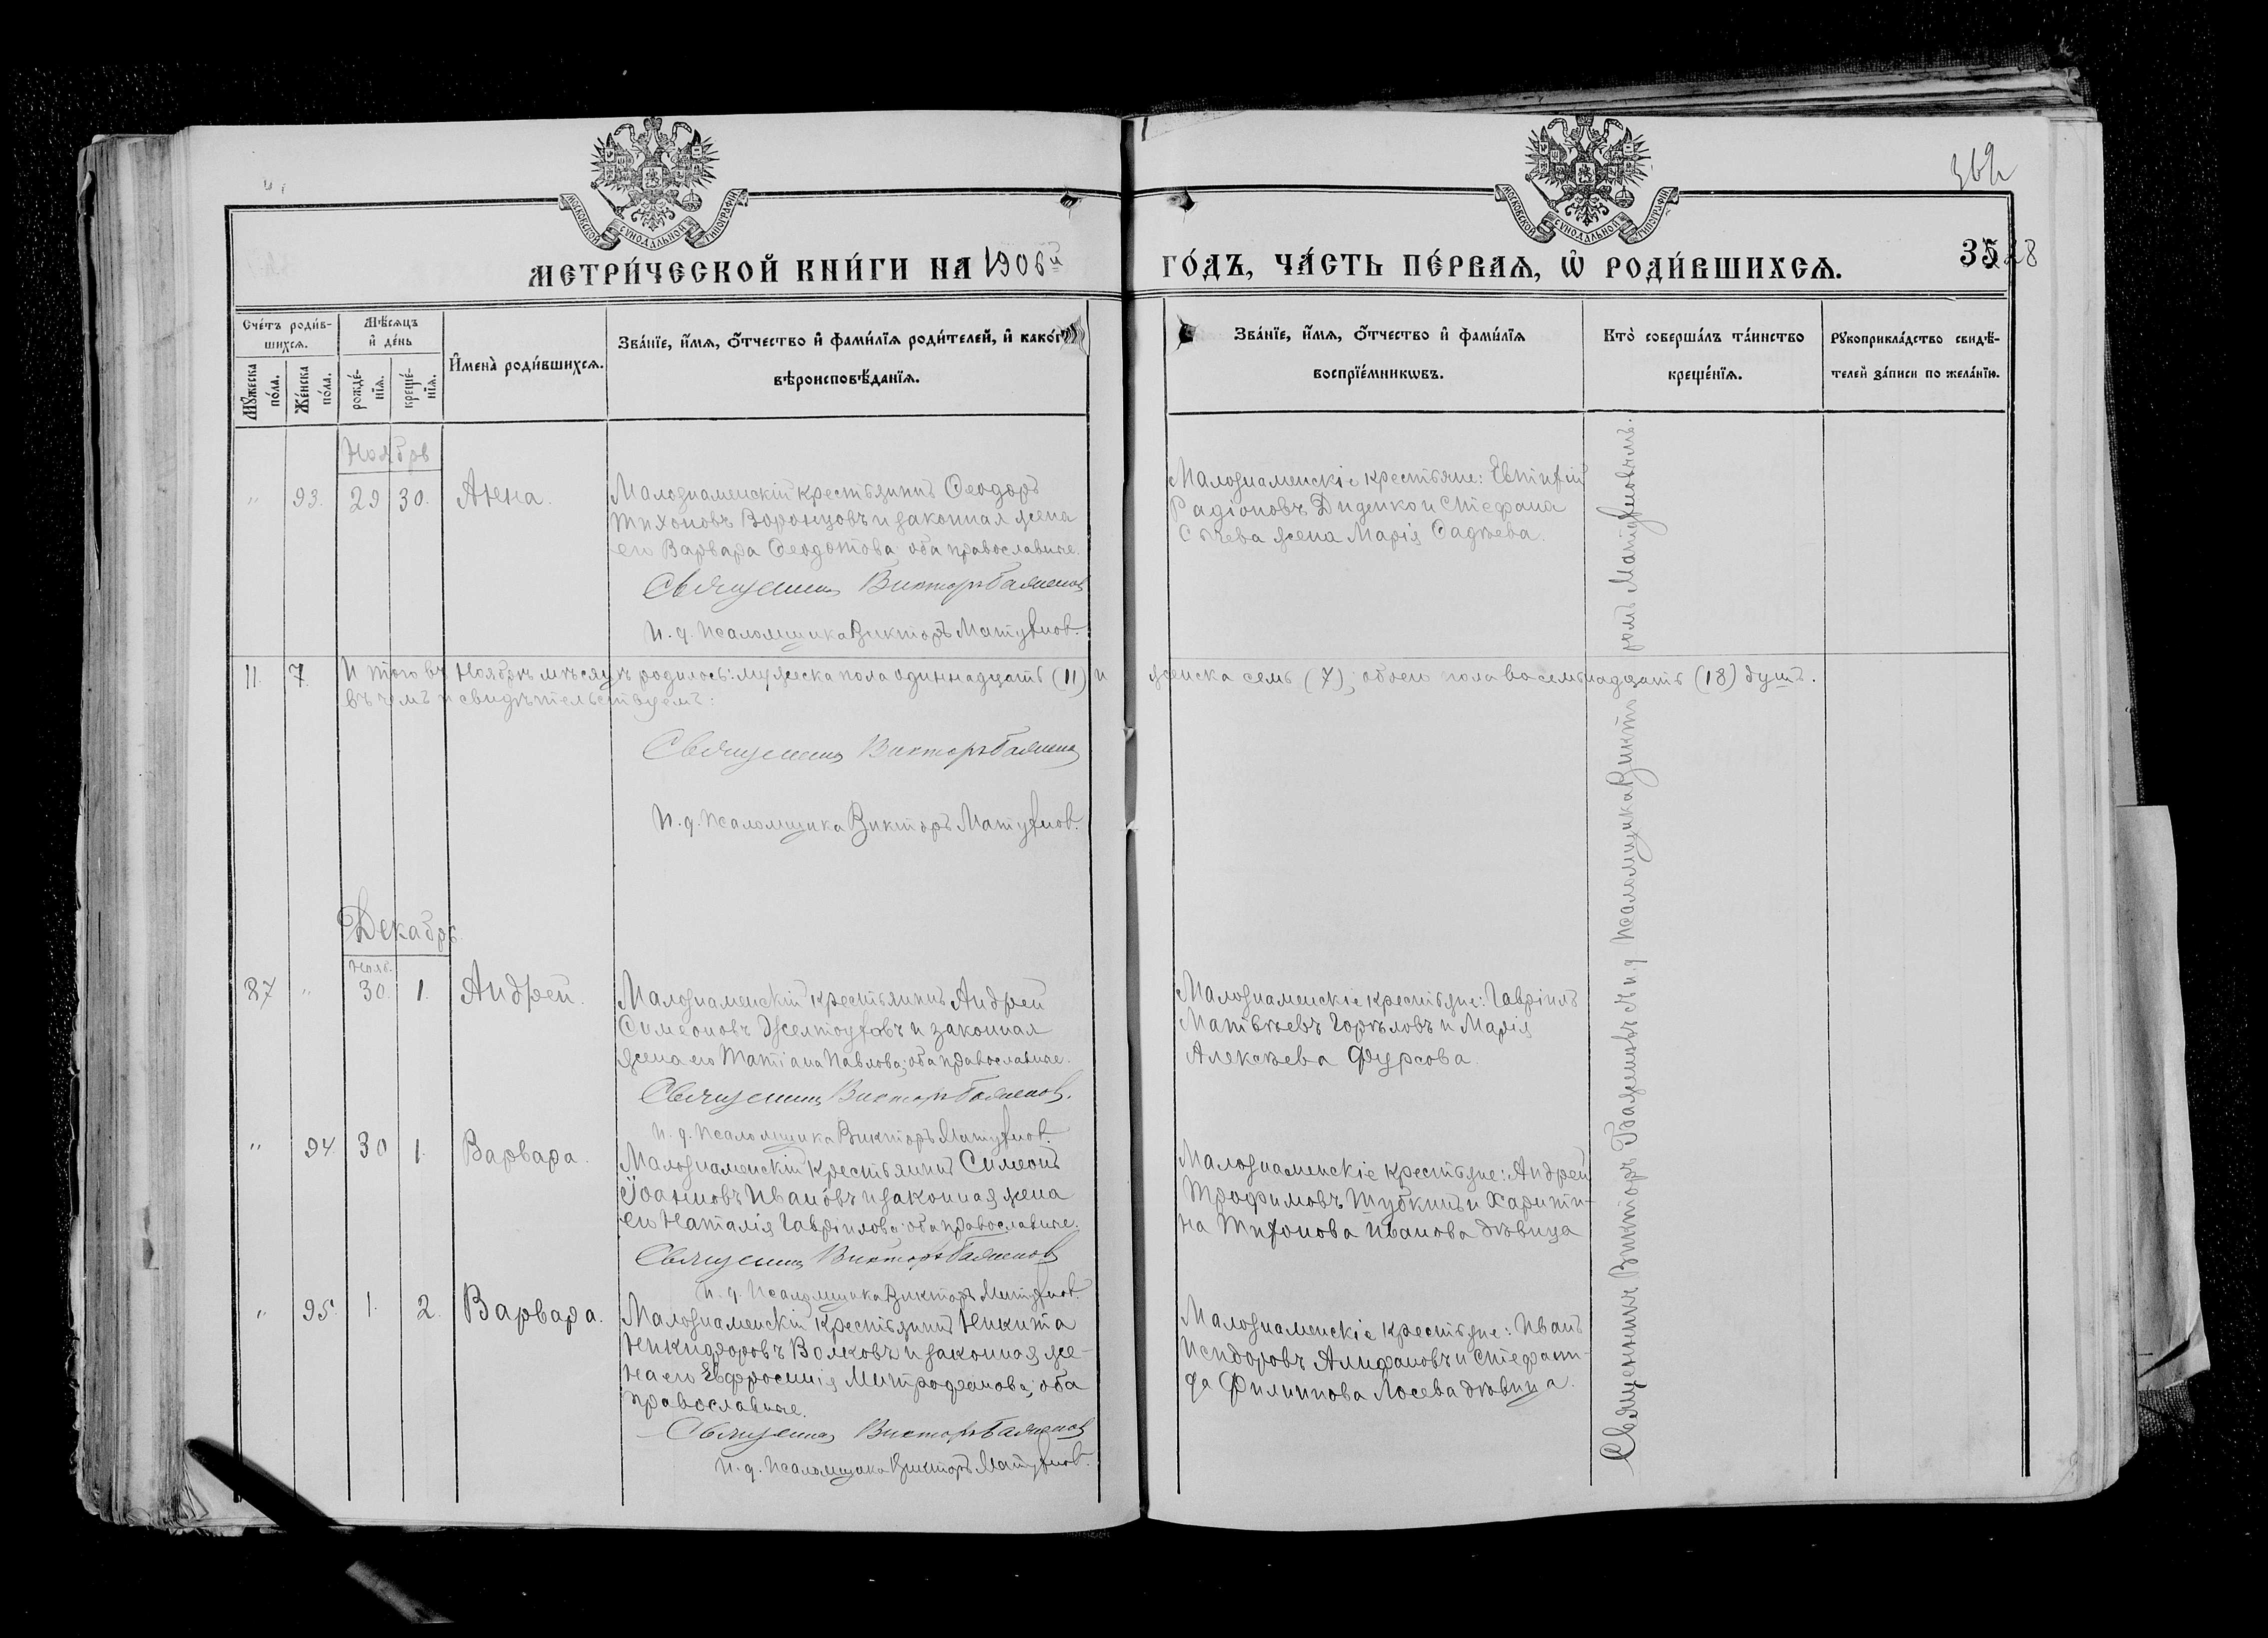 МОСКОВСКОЙ СУНОДАЛЬНОЙ ТИПОГРАФІИ
МОСКОВСКОЙ СУНОДАЛЬНОЙ ТИПОГРАФІИ
МЕТРИ́ЧЕСКОЙ КНИ́ГИ НА 1906й ГО́ДЪ, ЧА́СТЬ ПЕ́РВАѦ, Ѡ҆ РОДИ́ВШИХСѦ.
Сче́тъ роди́в-
шихсѧ.
Мꙋ́жеска по́ла.
Же́нска по́ла.
Мѣ́сѧцъ
и҆ де́нь
рожде́-
нїѧ.
креще́-
нїѧ.
И҆мена̀ роди́вшихсѧ.
Зва́нїе, и҆́мѧ, ѻ҆́тчество и҆ фами́лїѧ роди́телей, и҆ како́гѡ
вѣроисповѣ́данїѧ.
Зва́нїе, и҆́мѧ, ѻ҆́тчество и҆ фами́лїѧ
воспрїе́мникѡвъ.
Кто̀ соверша́лъ та́инство
креще́нїѧ.
Рꙋкоприкла́дство свидѣ́-
телей за́писи по жела́нїю.
Ноябрь
" 93. 29 30. Анна.
Малознаменскій крестьянинъ Ѳеодоръ
Тихоновъ Воронцовъ и законная жена
его Варвара Ѳеодотова, оба православные.
Священникъ Викторъ
И. д. Псаломщика Викторъ
Малознаменскіе крестьяне: Евтихій
Радіоновъ Диденко и Стефана
Сычева жена Марія Ѳадѣева.
11. 7. Итого въ Ноябрѣ мѣсяцѣ родилось: мужеска пола одиннадцать (11) и женска семь (7); обоего пола восемьнадцать (18) душъ.
въ чемъ и свидѣтельствуемъ:
Священникъ Викторъ
И. д. Псаломщика Викторъ
Декабрь.
Нояб.
87 " 30. 1. Андрей.
Малознаменскій крестьянинъ Андрей
Симеоновъ Желтоуховъ и законная
жена его Татіана Павлова; оба православные.
Священникъ Викторъ
И. д. Псаломщика Викторъ
Малознаменскіе крестьяне: Гавріилъ
Матвѣевъ Горѣловъ и Марія
Алексѣева Фурсова.
" 94. 30 1. Варвара.
Малознаменскій крестьянинъ Симеонъ
Іоанновъ Ивановъ и законная жена
его Наталія Гавріилова; оба православные.
Священникъ Викторъ
И. д. Псаломщика Викторъ
Малознаменскіе крестьяне: Андрей
Трофимовъ Тубкинъ и Харити-
на Тихонова Иванова дѣвица
" 95. 1. 2. Варвара.
Малознаменскій крестьянинъ Никита
Никифоровъ Волковъ и законная же-
на его Евфросинія Митрофанова; оба
православные.
Священникъ Викторъ
И. д. Псаломщика Викторъ
Малознаменскіе крестьяне: Иванъ
Исидоровъ Алифановъ и Стефани-
да Филиппова Лосева дѣвица.
Священникъ Викторъ и. д. псаломщика Викторомъ